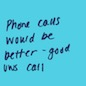 Phone calls
would be
better - good
vns call